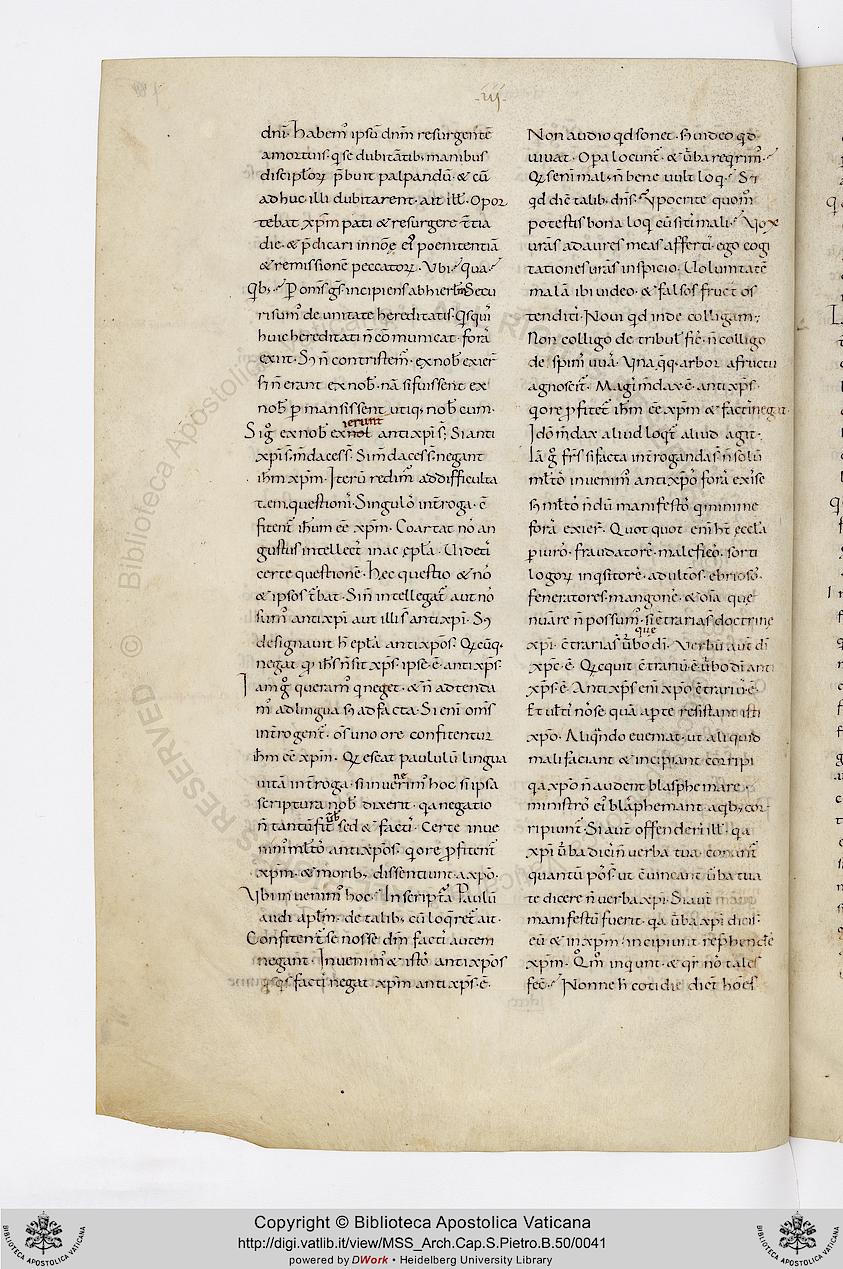 .iii.
dn̄i. habem᾽ ipsū dn̄m resurgentē
a mortuis. q se dubitātib; manibus
discipl̄orꝝ p̄buit palpandū. & cū
adhuc illi dubitarent. ait ill᾽. Opor
tebat xp̄m pati & resurgere t̄tia
die. & p̄dicari in noīe ei᾽ poenitentiā
& remissionē peccatorꝝ. Vbi? qua?
Qb;? P om̄s gs᾽. incipiens ab hierl̄m Secu
risum᾽ de unitate hereditatis. Qsqui
huic hereditati n̄ cōmunicat. foras
exiit. S; n̄ contristem᾽. ex nob᾽ exier᾽
s; n̄ erant ex nob᾽. nā si fuissent ex
nob᾽ p mansissent utiq; nob᾽cum.
Si g᾽ ex nob᾽ exierunt antixpi s̄; Si anti
xpi s̄. m̄daces s̄. Si m̄daces s̄. negant
ih̄m xp̄m. Iterū redim᾽ ad difficulta
tem questionis. Singulos int̄roga. c̄
fitent᾽ ih̄um ēē xp̄m. Coartat nos an
gustus intellect᾽ in ac epl̄a. Videtis
certe questionē. Hec questio & nos
& ipsos t᾽bat. Si n̄ intellegat᾽ aut nos
sum᾽ antixpi aut illi s̄ antixpi. S;
designauit h᾽ epl̄a antixpos. Q̄cūq;
negat qđ ih̄s n̄ sit xp̄s. ipse ē. antixp̄s.
Iam g᾽ queram᾽ q neget. & n̄ adtenda
m᾽ ad lingua s; ad facta. Si enī om̄s
int̄rogent᾽. os uno ore confitentur
ih̄m ēē xp̄m. Q̄escat paululū lingua
uitā int̄roga. si inuenerim᾽ hoc si ipsa
scriptura nob᾽ dixerit. qa negatio
n̄ tantū fit ūb᾽ sed & factis. Certe inue
nim᾽ ml̄tos antixpos. q ore p̄fitent᾽
xp̄m. & morib; dissentiunt a xpo.
Vbi inuenim᾽ hoc? In script̄a Paulū
audi apl̄m. de talib; cū loqret᾽ ait.
Confitent᾽ se nosse dm̄ factis autem
negant. Inuenim᾽ & istos antixpos
qsqs factis negat xp̄m antixp̄s. ē.
Non audio qd sonet. s; uideo qd
uiuat. Opa locunt᾽. & ūba reqrim᾽?
Q᾽s enī mal᾽. n̄ bene uult loq? S;
qd diē talib; dn̄s? Ypocrite quom᾽
potestis bona loq cū sitis mali? Vox
ur̄as ad aures meas affertis. ego cogi
tationes ur̄as inspicio. Voluntatē
malā ibi uideo. & falsos fructos
tenditis. Noui qd inde colligam;
Non colligo de tribulis fic᾽. n̄ colligo
de spinis uuā. Vnaqq; arbor a fructu
agnoscit᾽. Magis m̄dax. ē. antixp̄s.
q ore p̄fitet᾽ ih̄m ēē xp̄m & factis negat
Idō m̄dax aliud loqt᾽ aliud agit.
Iā g᾽ fr̄s si facta int̄rogandas᾽. n̄ solū
ml̄tos inuenim᾽ antixpos foras exisse
s; ml̄tos n̄dū manifestos q minime
foras exier᾽. Quot quot enī ht᾽ eccl̄a
piuros. fraudatores. maleficos. sorti
logorꝝ inqsitores. adultos. ebriosos.
feneratores. mangones. & oīa que
nuāre n̄ possum᾽. si c̄trarias᾽ doctrine
xpi. c̄traria s̄ ūbo di. Verbū aut̄ di
xp̄c ē. Q̄cquit c̄trariū ē. ūbo di anti
xp̄s ē. Antixp̄s enī xpo c̄trari᾽ ē.
Et ultis nosse quā apte resistant isti
xpo. Aliqn̄do euenat. ut aliquid
mali faciant & incipiant corripi
qa xpo n̄ audent blasphemare.
ministros ei᾽ blasphemant a qb; cor
ripiunt᾽. Si aut̄ offenderis ill᾽. qa
xpi ūba dicis n̄ uerba tua. conant᾽
quantū pos̄. ut c̄uincant ūba tua
te dicere n̄ uerba xpi. Si aut̄
manifestū fuerit. qa ūba xpi dicis.
eū & in xp̄m. incipiunt rep̄hendēre
xp̄m. Qm̄ inqunt. & qr̄ nos tales
fec᾽? Nonne h᾽ cotidie dic̄t hoēs
Copyright © Biblioteca Apostolica Vaticana
http://digi.vatlib.it/view/MSS_Arch.Cap.S.Pietro.B.50/0041
powered by DWork • Heidelberg University Library